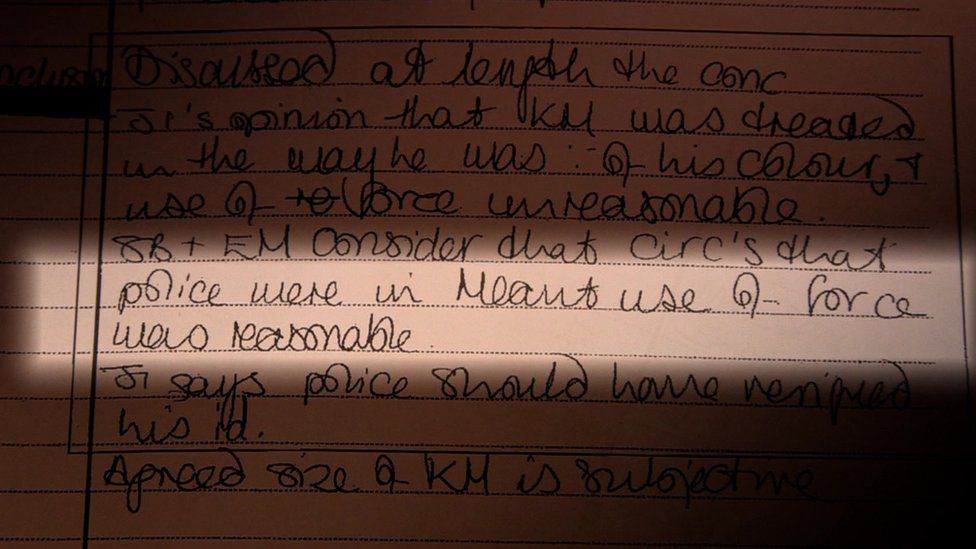 nclusion
Discussed at length the conc
JT's opinion that KM was treated
in the way he was ∵ of his colour, +
use of force unreasonable.
SB + EM consider that circ's that
police were in meant use of force
was reasonable.
JT says police should have verified
his id.
Agreed size of KM is subjective